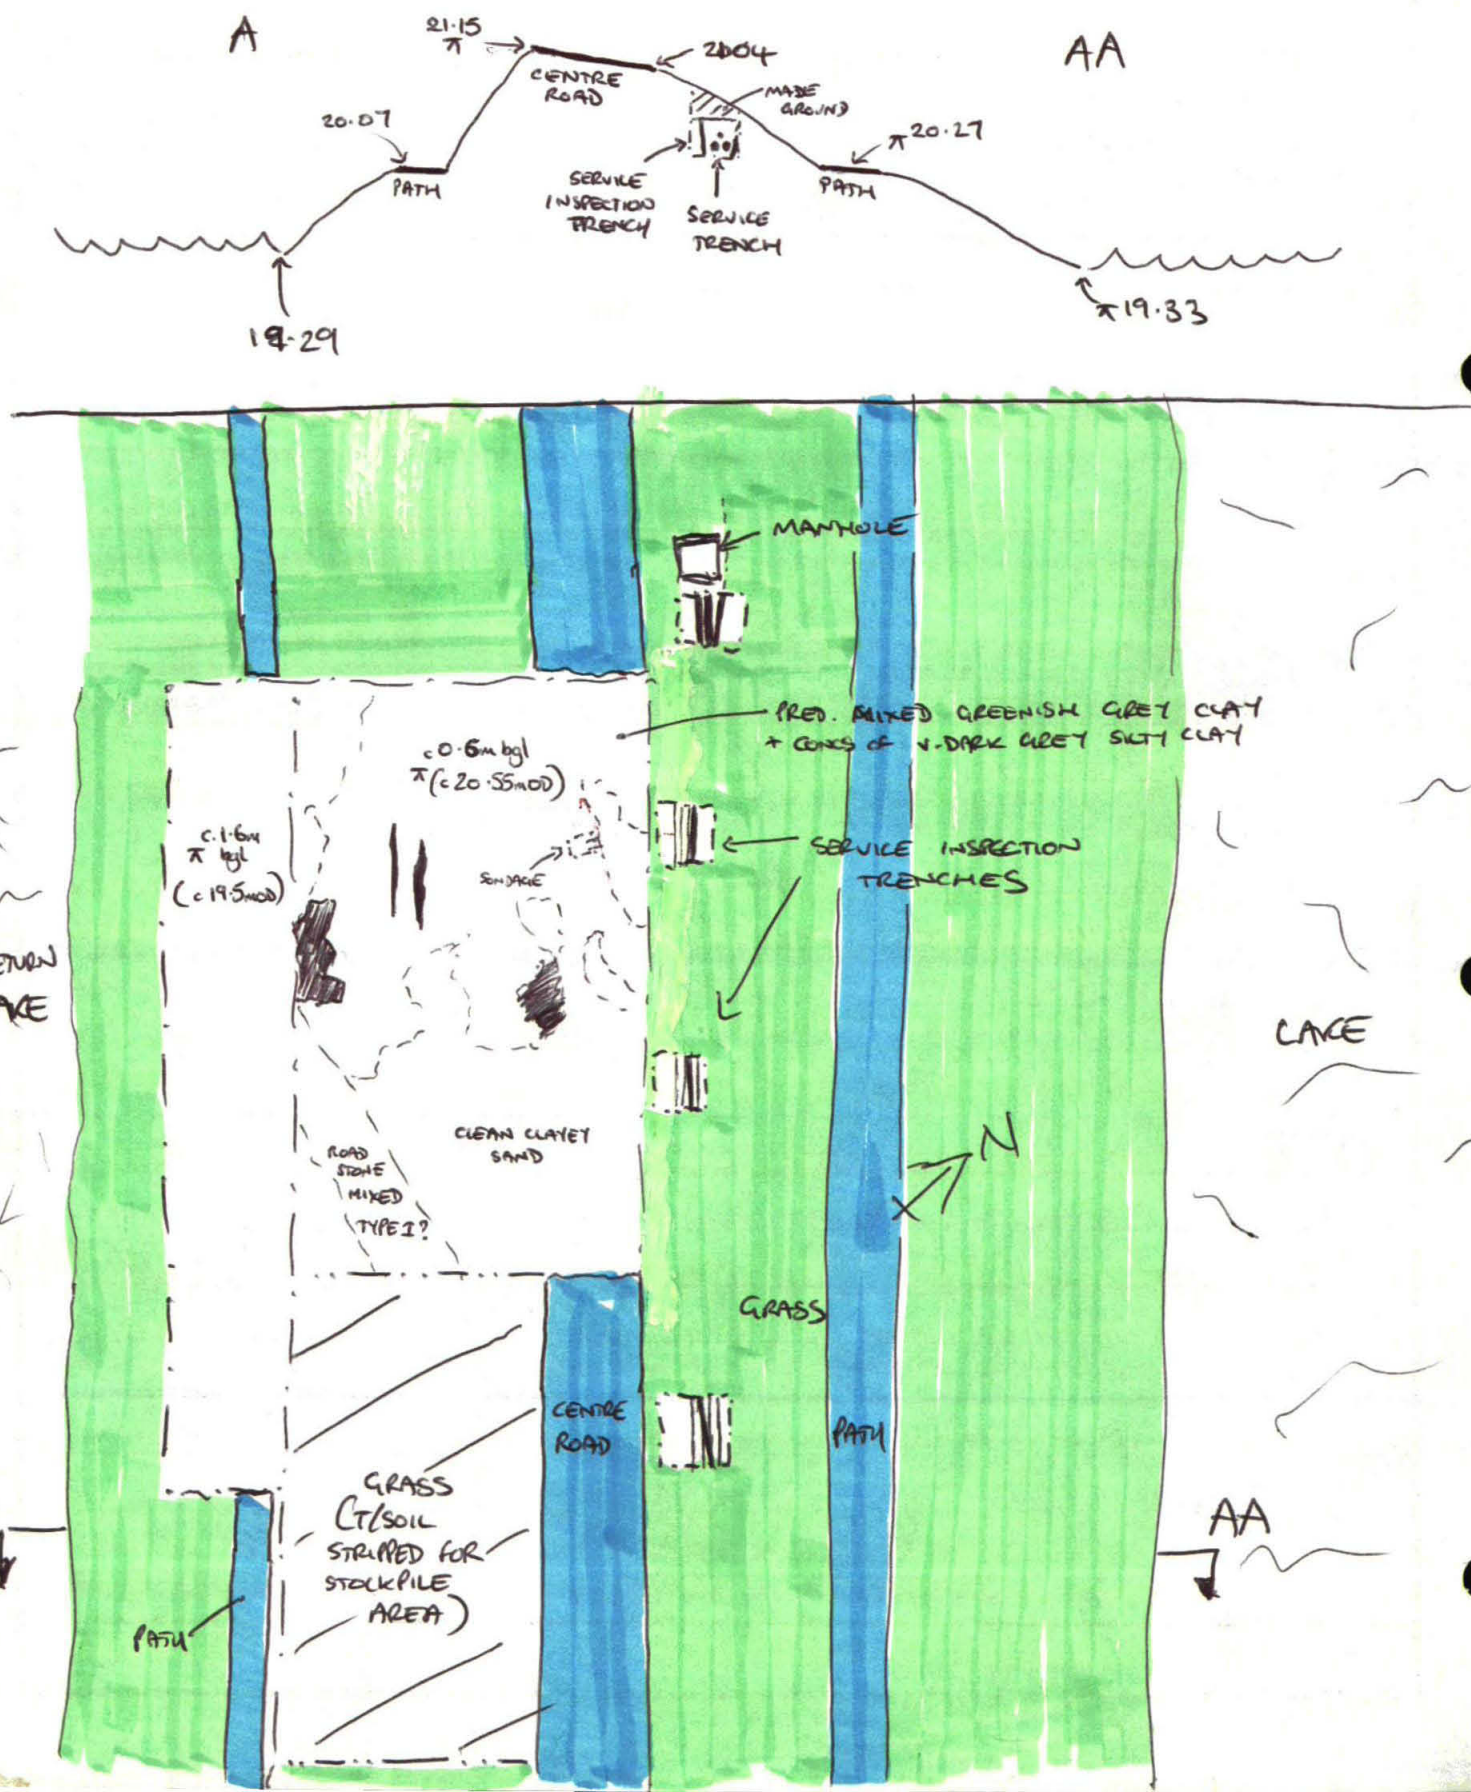 A
21.15
AA
CENTRE
ROAD
MADE
GROUND
20.07
20.27
PATH
SERVICE
INSPECTION
TRENCH
SERVICE
TRENCH
PATH
19.33
MANHOLE
PRED. MIXED GREENISH GREY CLAY
+ CONCS OF V.DARK GREY SILTY CLAY
c0.6m bgl
(c20.55mOD)
c.1.6m
bgl
(c19.5mOD)
SONDAGE
SERVICE INSPECTION
TRENCHES
LAKE
N
CLEAN CLAYEY
SAND
ROAD
STONE
MIXED
TYPE 1?
GRASS
CENTRE
ROAD
PATH
GRASS
(T/SOIL
STRIPPED FOR
STOCKPILE
AREA)
AA
PATH